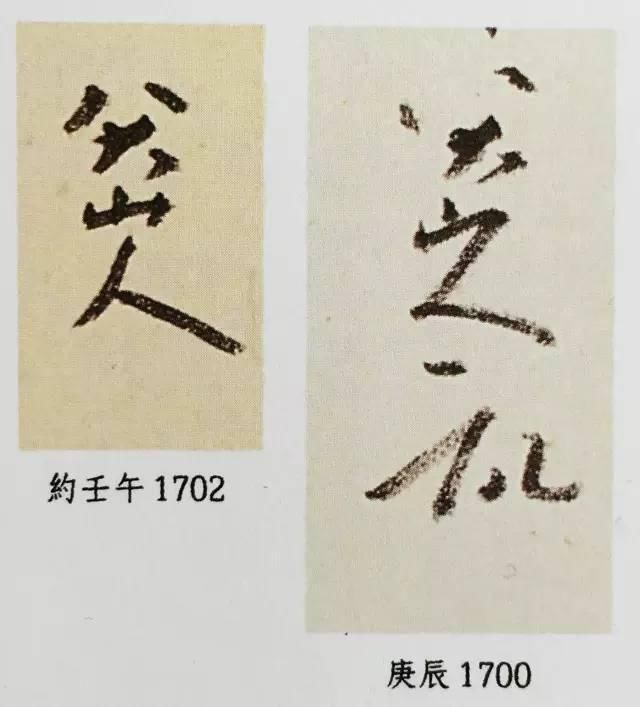 八大山人
約壬午 1702
八大山人
庚辰 1700